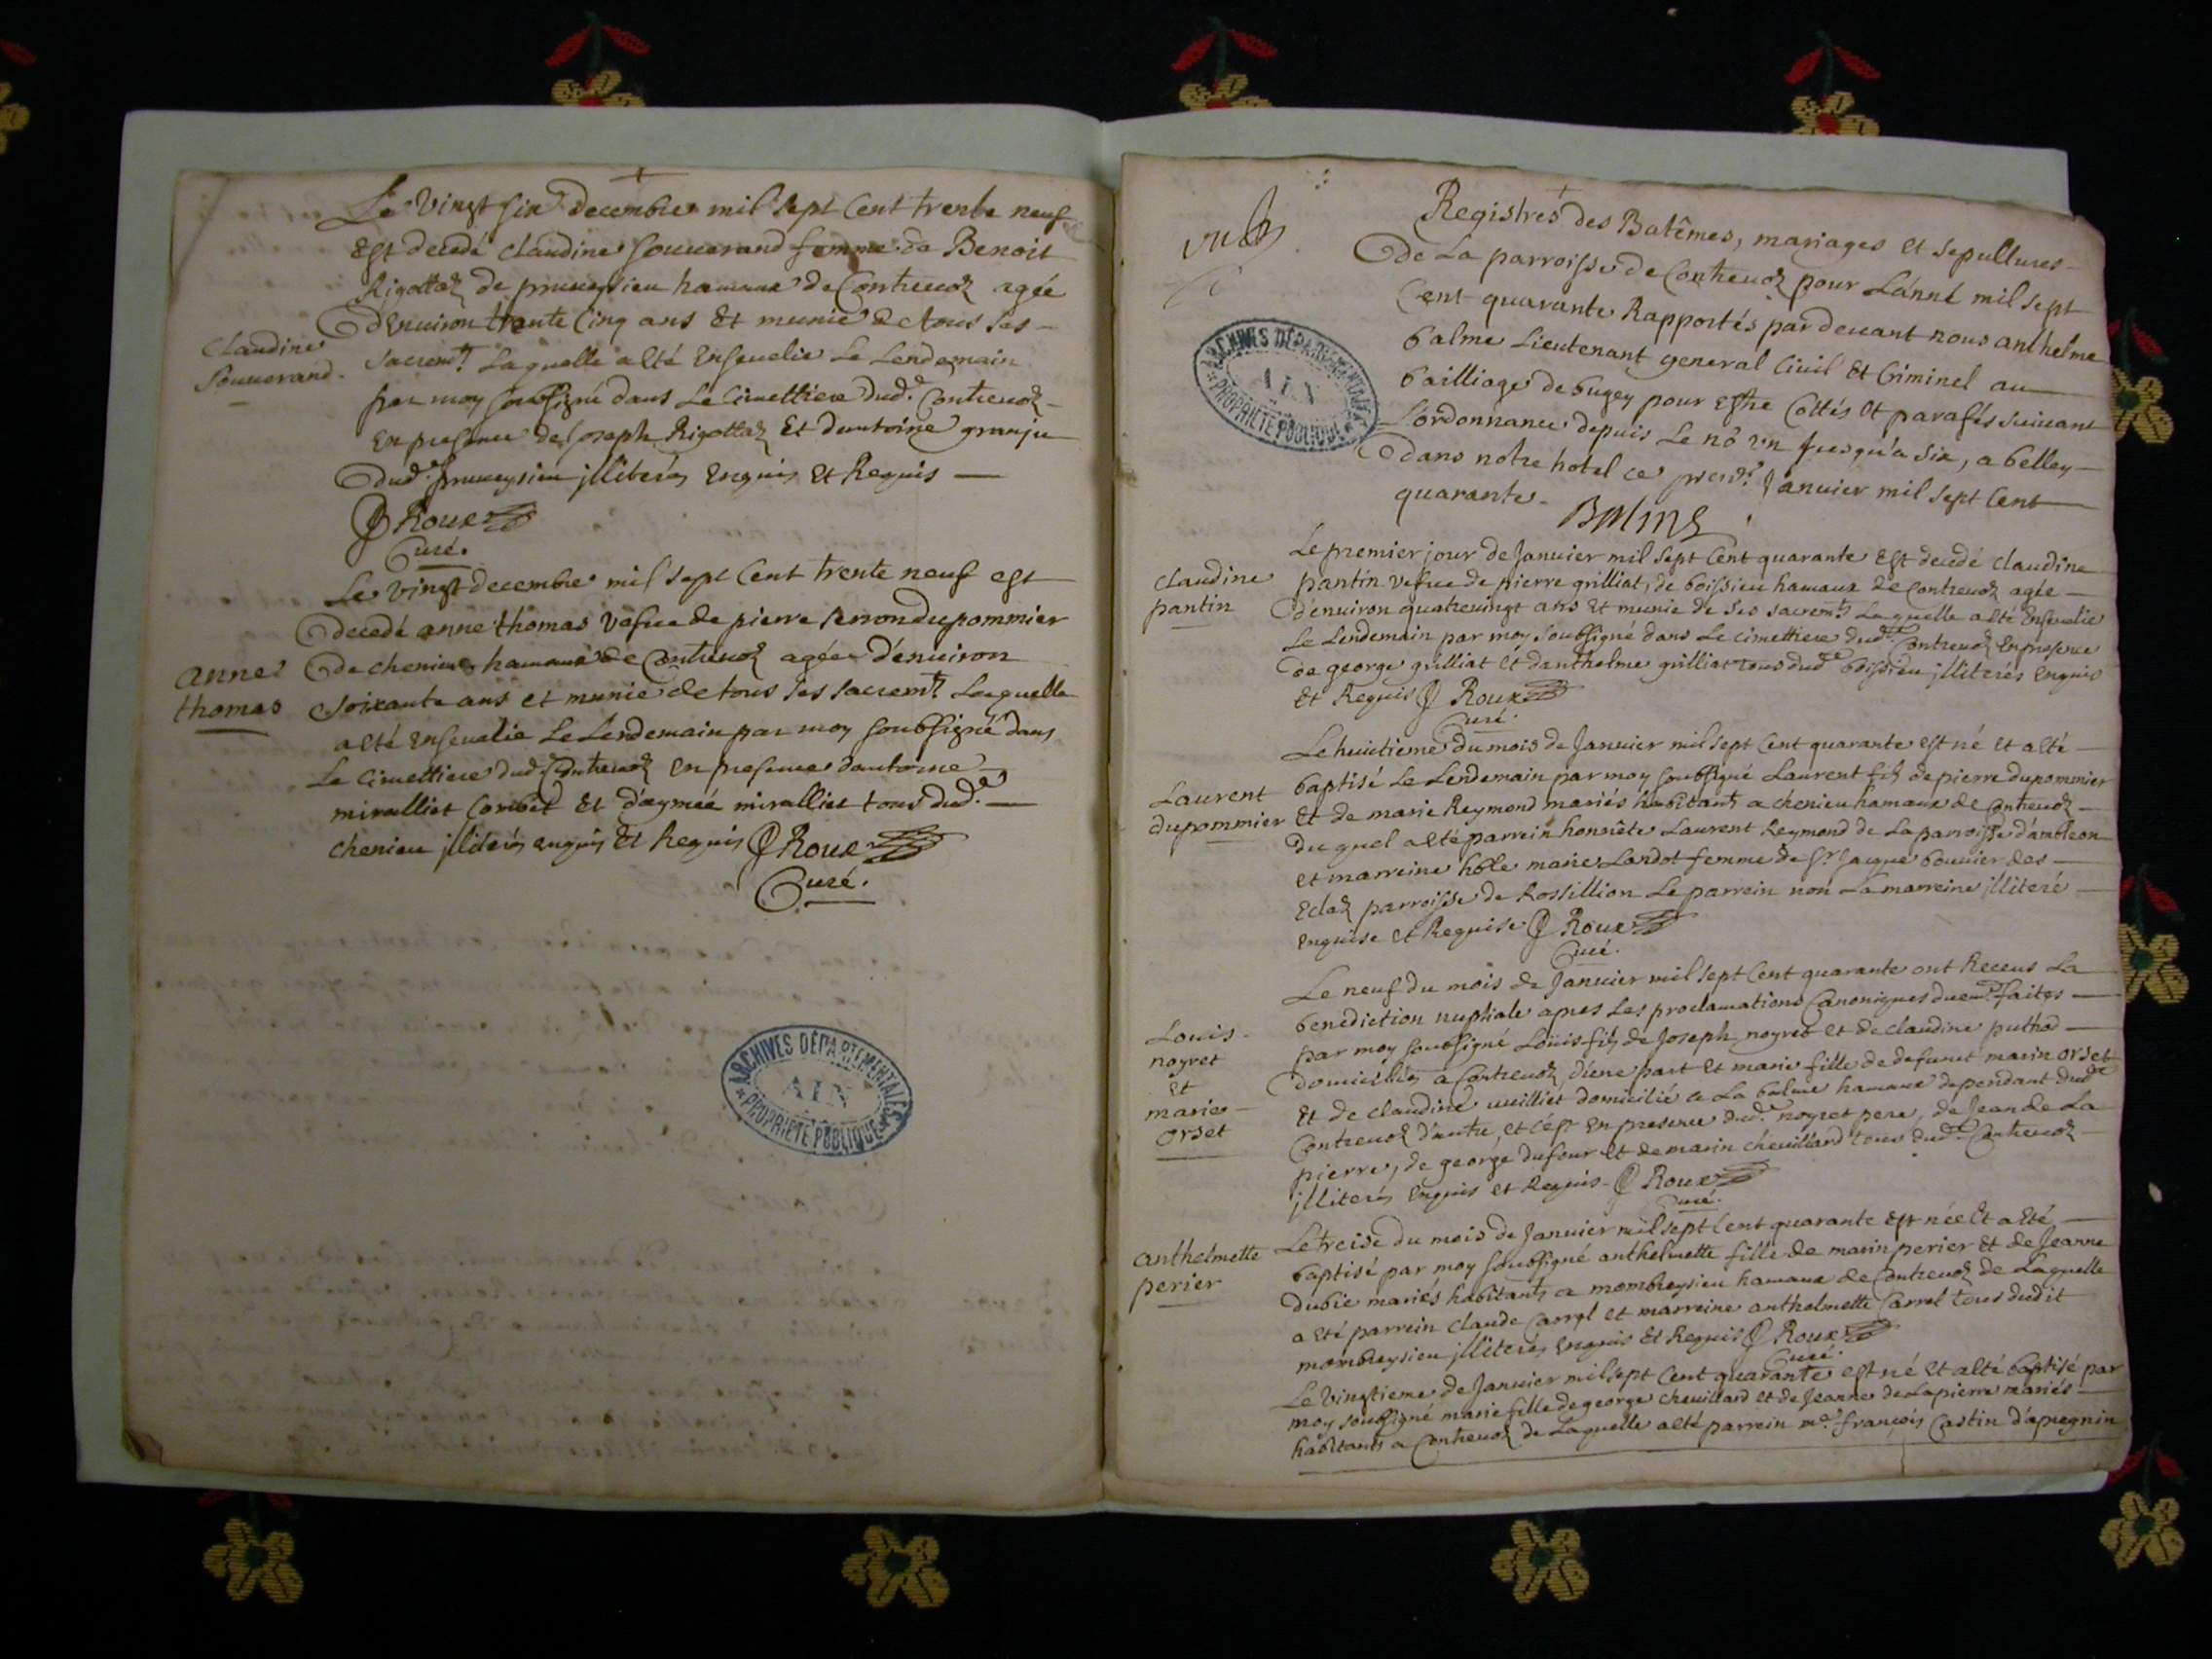 Le vingt six decembre mil sept Cent trente neuf
Est decedé claudine souuerand femme de Benoit
Rigottaz de pruneysieu hamaux de Contreuoz agée
D'Enuiron trente Cinq ans Et munie de tous ses
Claudine
Souuerand.
sacremts. Laquelle a Eté Enseuelie Le Lendemain
par moy soubsigné dans Le Cimettiere dudt. Contreuoz
En presence de Joseph Rigottaz Et d'antoine granju
Dudt. pruneysieu jlliterés Enquis Et Requis
Roux
Curé.
Le vingt decembre mil sept Cent trente neuf est
Decedé anne thomas vefue de pierre serron dupommier
anne
thomas
De chenieu hamaux de Contreuoz agée d'enuiron
soixante ans et munie de tous ses sacremts. Laquelle
a Eté Enseuelie Le Lendemain par moy soubsigné dans
Le Cimettiere dudt. Contreuoz En presence dantoine
miralliet Combet Et d'aymé miralliet tous dudt.
chenieu jlliterés enquis Et Requis Roux
Curé.
ARCHIVES DÉPARTEMENTALES
AIN
PROPRIETE PUBLIQUE
Registres des Batêmes, mariages et sepultures
De La parroisse de Contreuoz pour L'année mil sept
Cent quarante Rapportés par deuant nous anthelme
balme Lieutenant general Ciuil Et Criminel au
bailliage de bugey pour Estre Cottés Et parafés suiuant
L'ordonnance depuis Le no. un jusqu'a six, a belley
Dans notre hotel ce premr. Januier mil sept Cent
quarante.
Balme
ARCHIVES DÉPARTEMENTALES
AIN
PROPRIETE PUBLIQUE
claudine
pantin
Le premier jour de Januier mil sept Cent quarante Est decedé claudine
pantin vefue de pierre grilliat, de boissieu hamaux de Contreuoz agée
d'enuiron quatreuingt ans et munie de ses sacremts. Laquelle a Eté Enseuelie
Le Lendemain par moy soubsigné dans Le cimettiere dudt. Contreuoz En presence
de george grilliat et danthelme grilliat tous dudt. boissieu jlliterés Enquis
Et Requis Roux
Curé.
Laurent
dupommier
Le huictieme du mois de Januier mil sept Cent quarante est né et a Eté
baptisé Le Lendemain par moy soubsigné Laurent fils de pierre dupommier
Et de marie Reymond mariés habitants a chenieu hamaux de Contreuoz
duquel a Eté parrein honnête Laurent Reymond de La parroisse d'ambleon
et marreine hble marie Lardot femme de Sr. Jacque bouuier des
Eclaz parroisse de Rossillion Le parrein non La marreine jlliteré
enquise et Requise Roux
Curé.
Louis
noyret
Et
marie
orset
Le neuf du mois de Januier mil sept Cent quarante ont Receus La
benediction nuptiale apres Les proclamations Canoniques duemt. faites
par moy soubsigné Loüis fils de Joseph noyret et de claudine puthod
Domiciliés a Contreuoz, d'une part Et marie fille de defunct marin orset
Et de claudine uuilliet domicilié a La balme hamaux dependant dudt.
Contreuoz d'autre, et c'est En presence dudt. noyret pere, de Jean de La
pierre, de george dufour Et de marin cheuillard tous dudt. Contreuoz
jlliterés Enquis et Requis. Roux
Curé.
anthelmette
perier
Le treise du mois de Januier mil sept Cent quarante Est née Et a Eté
baptisé par moy soubsigné anthelmette fille de marin perier Et de Jeanne
Dubie mariés habitants a mombreysieu hamaux de Contreuoz de Laquelle
a Eté parrein claude Carrel et marreine anthelmette Carrel tous dudit
mombreysieu jlliterés Enquis Et Requis Roux
Curé.
Le vingtieme de Januier mil sept Cent quarante est né et a Eté baptisé par
moy soubsigné marie fille de george cheuillard et de Jeanne de Lapierre mariés
habitants a Contreuoz de Laquelle a Eté parrein me. françois Castin d'apregnin